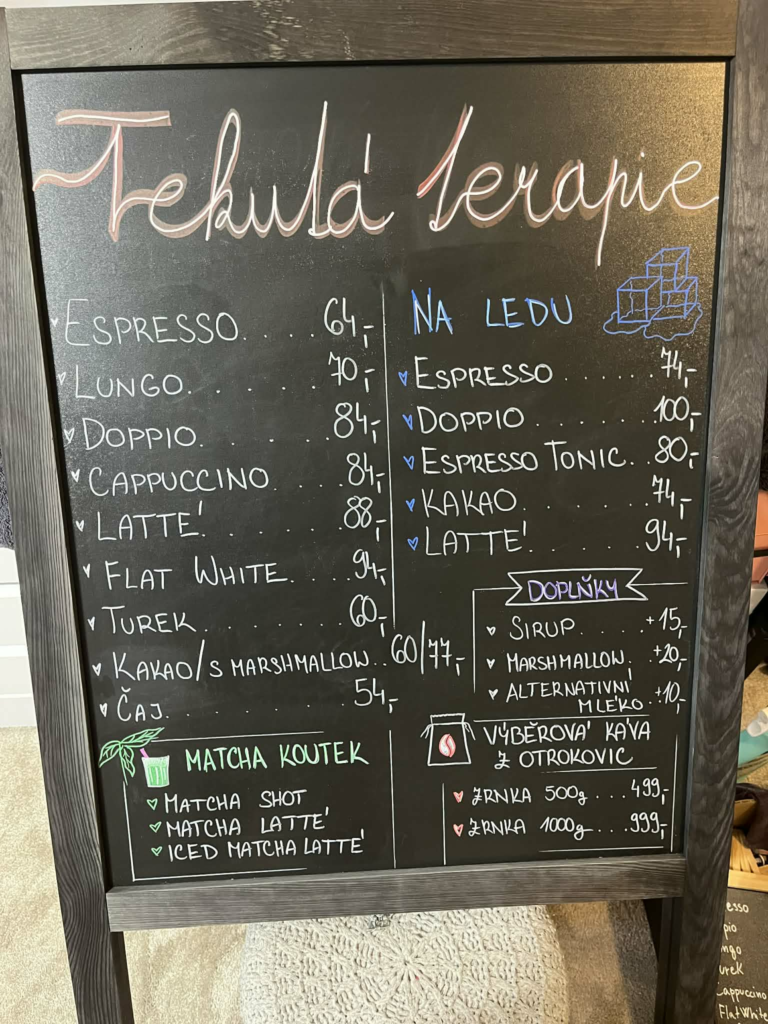 Tekutá terapie
ESPRESSO. . . . . 64,-
LUNGO. . . . . . 70,-
DOPPIO. . . . . . 84,-
CAPPUCCINO . . . 84,-
LATTÉ . . . . . . 88,-
FLAT WHITE. . . . 94,-
TUREK. . . . . . . 60,-
KAKAO/S MARSHMALLOW. . 60/77,-
ČAJ. . . . . . . . 54,-
NA LEDU
ESPRESSO . . . . . . 74,-
DOPPIO . . . . . . . 100,-
ESPRESSO TONIC. . 80,-
KAKAO. . . . . . . 74,-
LATTÉ . . . . . . . 94,-
DOPLŇKY
SIRUP. . . . . +15,-
MARSHMALLOW. +20,-
ALTERNATIVNÍ
MLÉKO. +10,-
MATCHA KOUTEK
MATCHA SHOT
MATCHA LATTÉ
ICED MATCHA LATTÉ
VÝBĚROVÁ KÁVA
Z OTROKOVIC
ZRNKA 500g . . . 499,-
ZRNKA 1000g . . . 999,-
esso
pio
ngo
urek
Cappuccino
Flat White